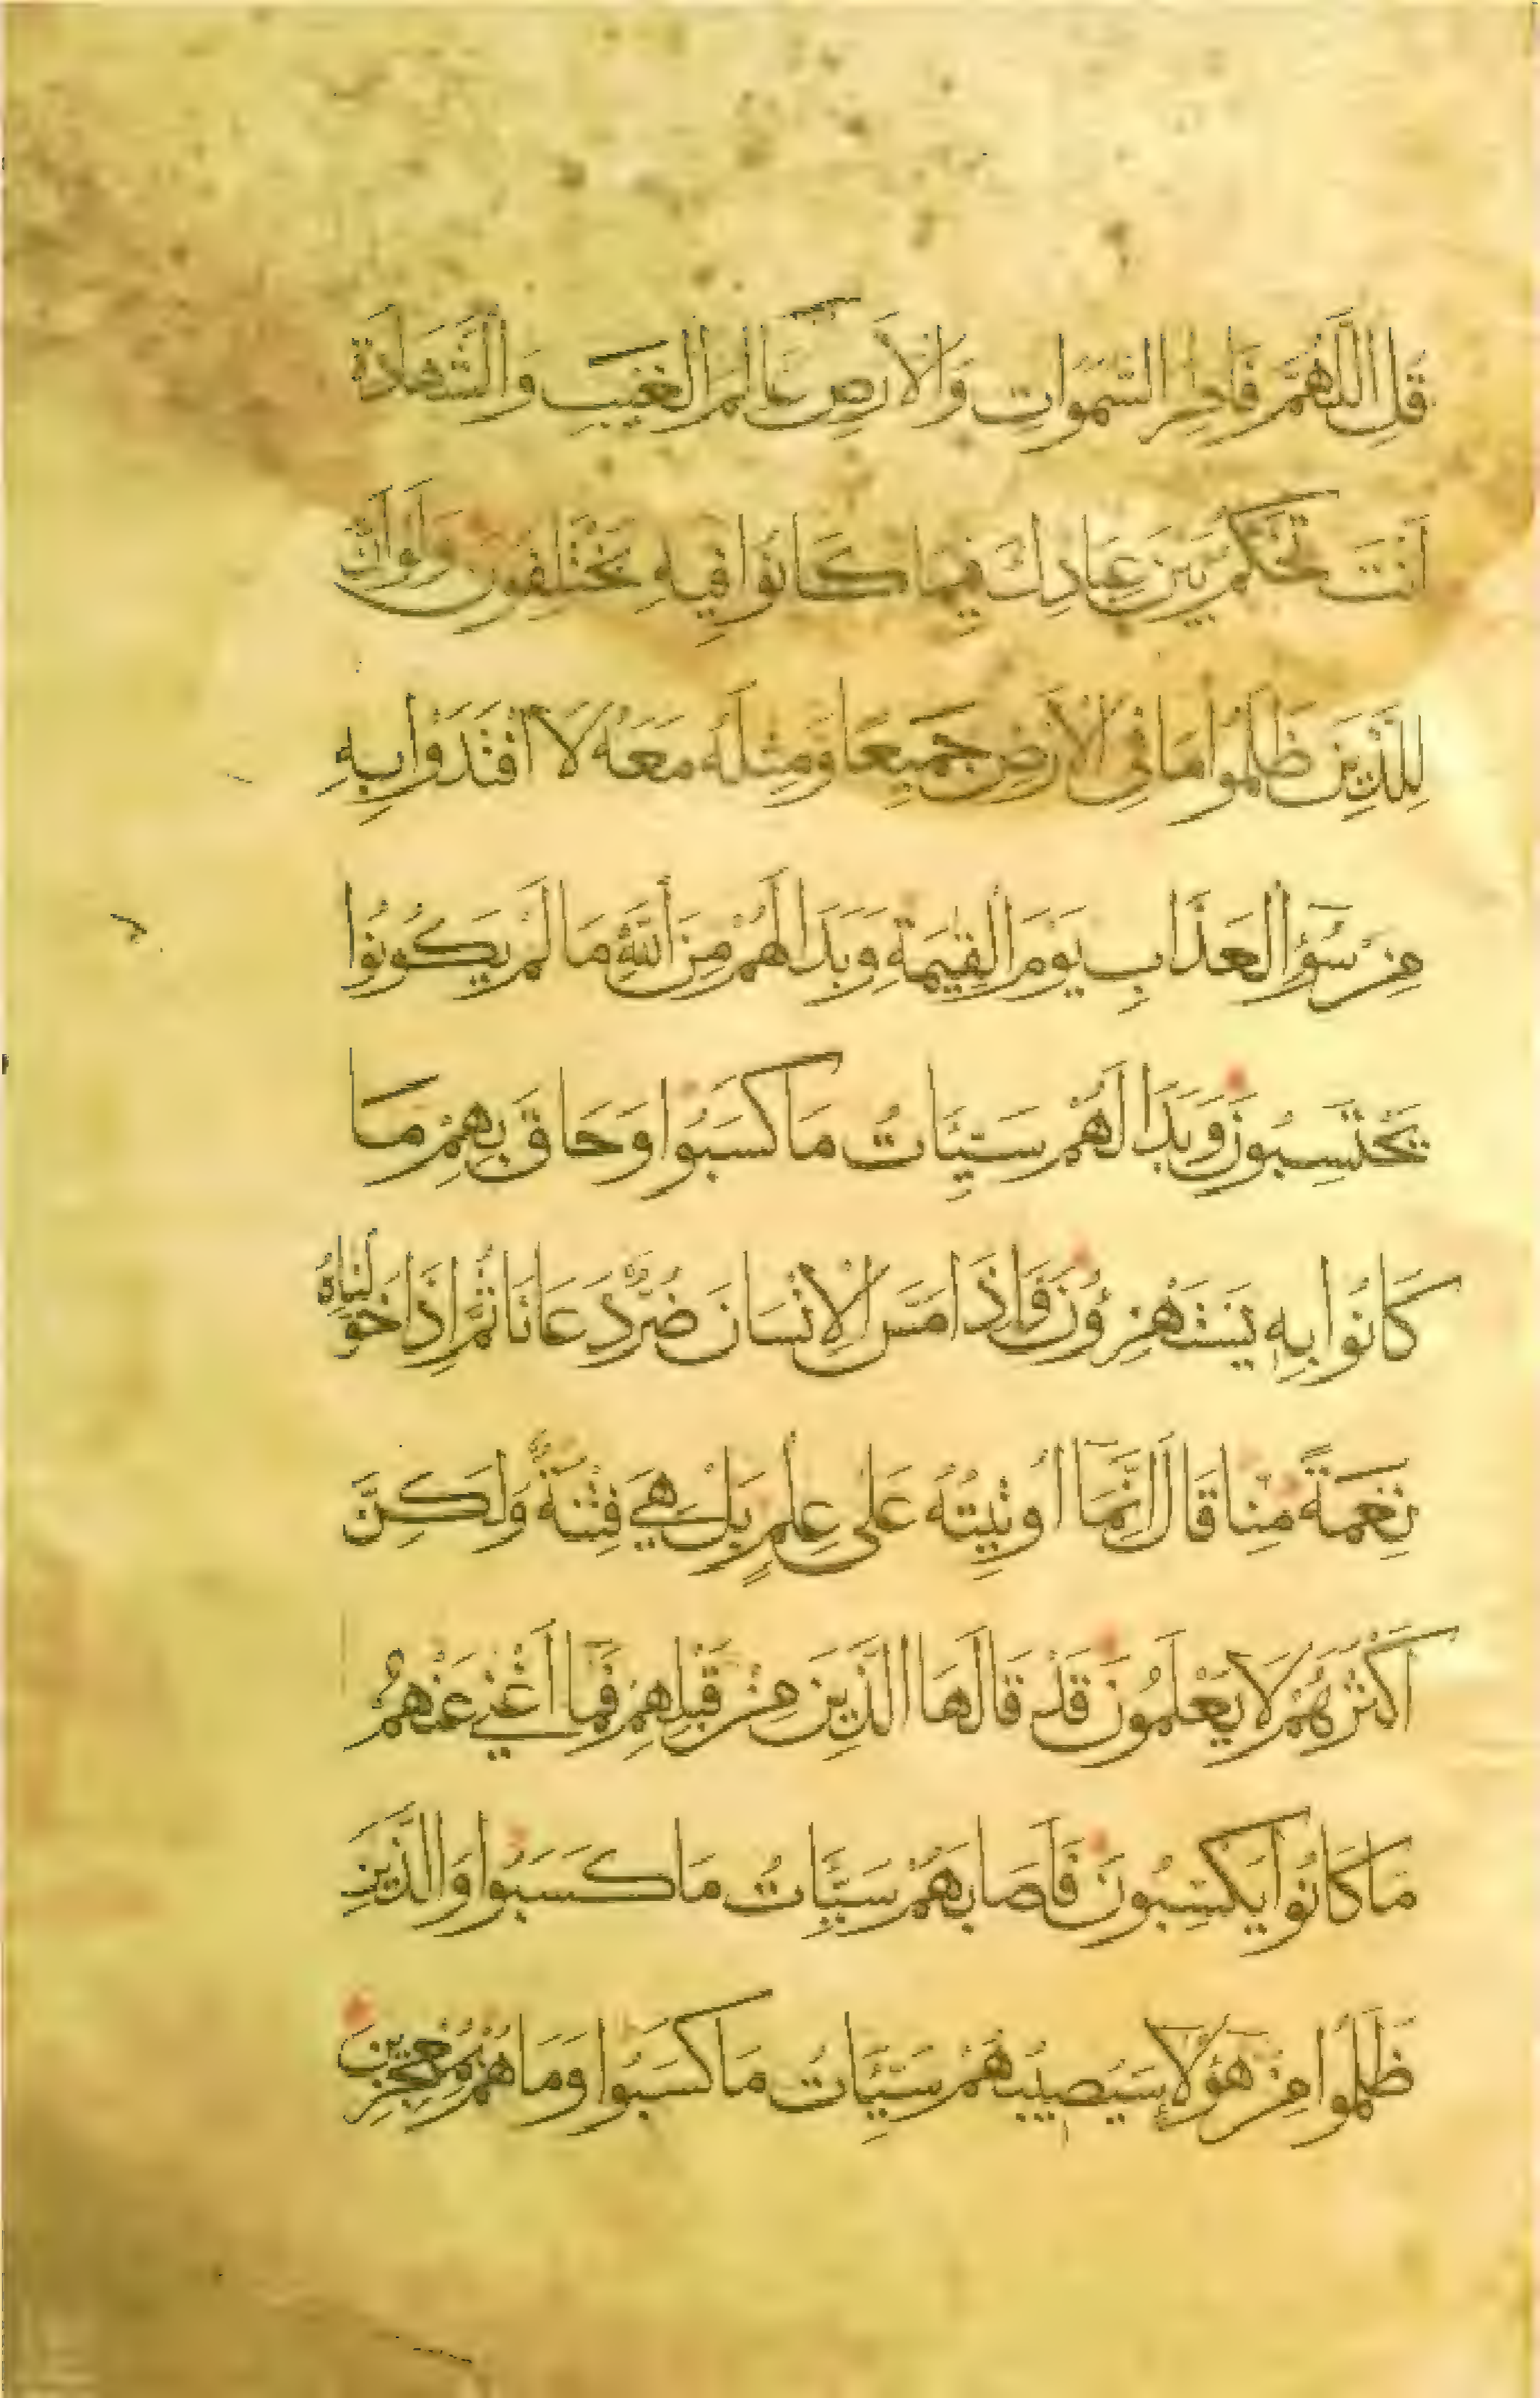 قُلِ اللَّهُمَّ فَاطِرَ السَّمَوَاتِ وَالْاَرْضِ عَالِمَ الْغَيْبِ وَالشَّهَادَةِ
اَنْتَ تَحْكُمُ بَيْنَ عِبَادِكَ فِيمَا كَانُوا فِيهِ يَخْتَلِفُونَ وَلَوْ اَنَّ
لِلَّذِينَ ظَلَمُوا مَا فِى الْاَرْضِ جَمِيعًا وَمِثْلَهُ مَعَهُ لَا افْتَدَوْا بِهِ
مِنْ سُوْءِ الْعَذَابِ يَوْمَ الْقِيمَةِ وَبَدَا لَهُمْ مِنَ اللَّهِ مَا لَمْ يَكُونُوا
يَحْتَسِبُونَ وَبَدَا لَهُمْ سَيِّئَاتُ مَا كَسَبُوا وَحَاقَ بِهِمْ مَا
كَانُوا بِهِ يَسْتَهْزِؤُنَ فَاِذَا مَسَّ الْاِنْسَانَ ضُرٌّ دَعَانَا ثُمَّ اِذَا خَوَّلْنَاهُ
نِعْمَةً مِنَّا قَالَ اِنَّمَا اُوتِيتُهُ عَلَى عِلْمٍ بَلْ هِيَ فِتْنَةٌ وَلَكِنَّ
اَكْثَرَهُمْ لَا يَعْلَمُونَ قَدْ قَالَهَا الَّذِينَ مِنْ قَبْلِهِمْ فَمَا اَغْنَى عَنْهُمْ
مَا كَانُوا يَكْسِبُونَ فَاَصَابَهُمْ سَيِّئَاتُ مَا كَسَبُوا وَالَّذِينَ
ظَلَمُوا مِنْ هَؤُلَاءِ سَيُصِيبُهُمْ سَيِّئَاتُ مَا كَسَبُوا وَمَا هُمْ بِمُعْجِزِينَ